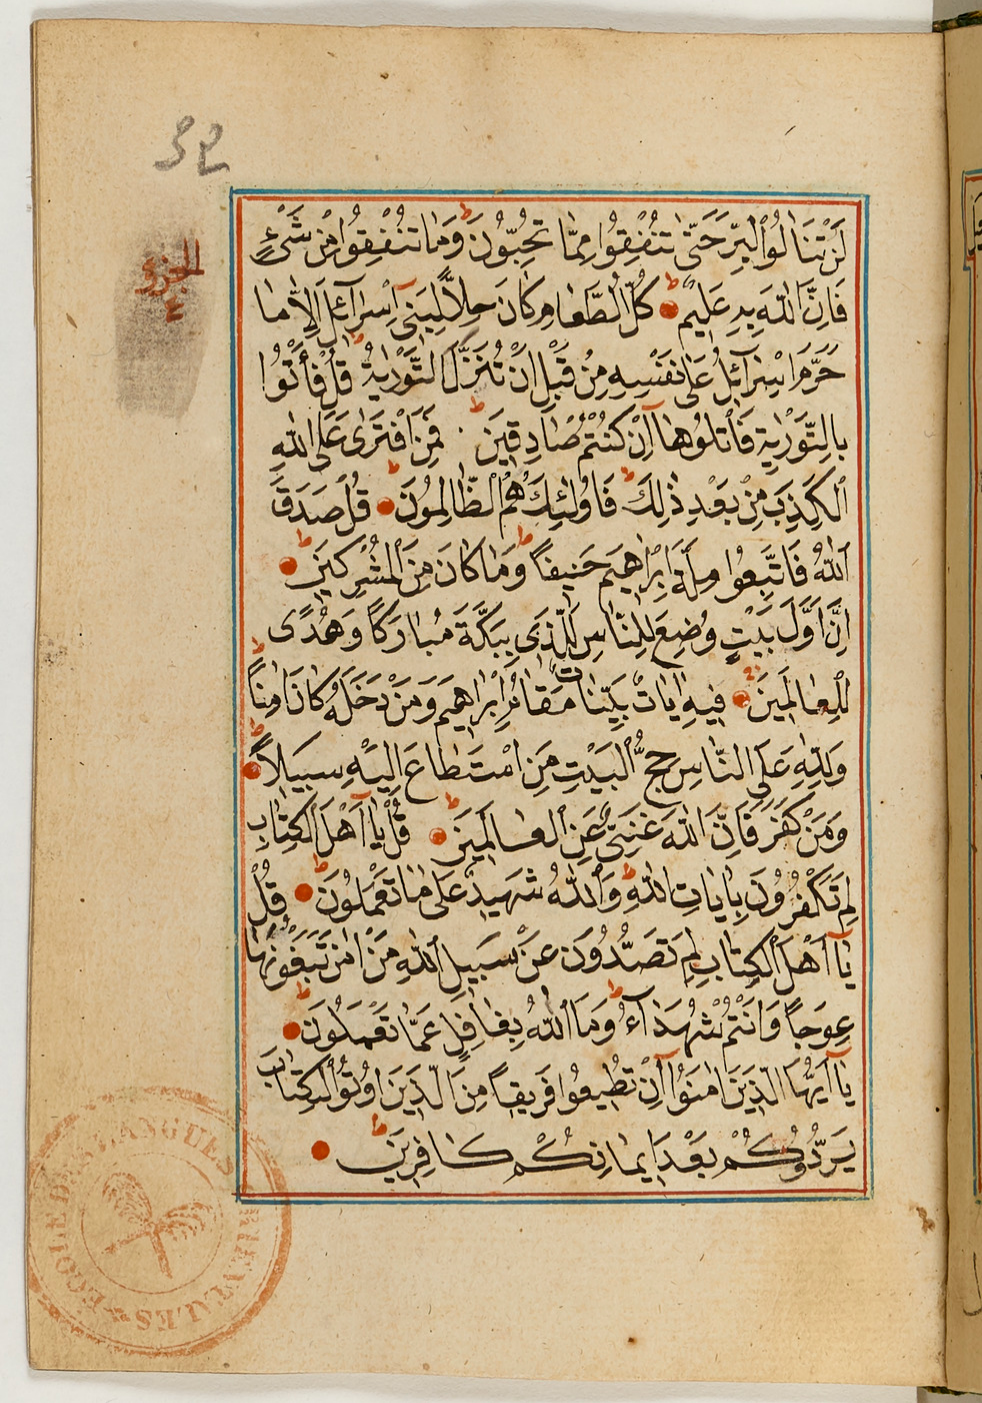 32
الجزء
٤
لَنْ تَنَالُوا الْبِرَّ حَتّٰى تُنْفِقُوا مِمَّا تُحِبُّونَ ط وَمَا تُنْفِقُوا مِنْ شَيْءٍ
فَاِنَّ اللّٰهَ بِهِ عَلِيمٌ ط كُلُّ الطَّعَامِ كَانَ حِلاًّ لِبَنِي اِسْرَآئِلَ اِلَّا مَا
حَرَّمَ اِسْرَآئِلُ عَلٰى نَفْسِهِ مِنْ قَبْلِ اَنْ تُنَزَّلَ التَّوْرٰيةُ ط قُلْ فَأْتُوا
بِالتَّوْرٰيةِ فَاتْلُوهَا اِنْ كُنْتُمْ صَادِقِينَ ط فَمَنِ افْتَرٰى عَلَى اللّٰهِ
الْكَذِبَ مِنْ بَعْدِ ذٰلِكَ ط فَاُولٰئِكَ هُمُ الظَّالِمُونَ ط قُلْ صَدَقَ
اللّٰهُ فَاتَّبِعُوا مِلَّةَ اِبْرَاهِيمَ حَنِيفًا ط وَمَا كَانَ مِنَ الْمُشْرِكِينَ ط
اِنَّ اَوَّلَ بَيْتٍ وُضِعَ لِلنَّاسِ لَلَّذِي بِبَكَّةَ مُبَارَكًا وَهُدًى
لِلْعَالَمِينَ فِيهِ اٰيَاتٌ بَيِّنَاتٌ مَقَامُ اِبْرَاهِيمَ وَمَنْ دَخَلَهُ كَانَ اٰمِنًا ط
وَلِلّٰهِ عَلَى النَّاسِ حِجُّ الْبَيْتِ مَنِ اسْتَطَاعَ اِلَيْهِ سَبِيلاً ط
وَمَنْ كَفَرَ فَاِنَّ اللّٰهَ غَنِيٌّ عَنِ الْعَالَمِينَ ط قُلْ يَا اَهْلَ الْكِتَابِ
لِمَ تَكْفُرُونَ بِاٰيَاتِ اللّٰهِ ط وَاللّٰهُ شَهِيدٌ عَلٰى مَا تَعْمَلُونَ ط قُلْ
يَا اَهْلَ الْكِتَابِ لِمَ تَصُدُّونَ عَنْ سَبِيلِ اللّٰهِ مَنْ اٰمَنَ تَبْغُونَهَا
عِوَجًا وَاَنْتُمْ شُهَدَآءُ ط وَمَا اللّٰهُ بِغَافِلٍ عَمَّا تَعْمَلُونَ ط
يَا اَيُّهَا الَّذِينَ اٰمَنُوا اِنْ تُطِيعُوا فَرِيقًا مِنَ الَّذِينَ اُوتُوا الْكِتَابَ
يَرُدُّوكُمْ بَعْدَ اِيمَانِكُمْ كَافِرِينَ ط
ECOLE DES LANGUES ORIENTALES